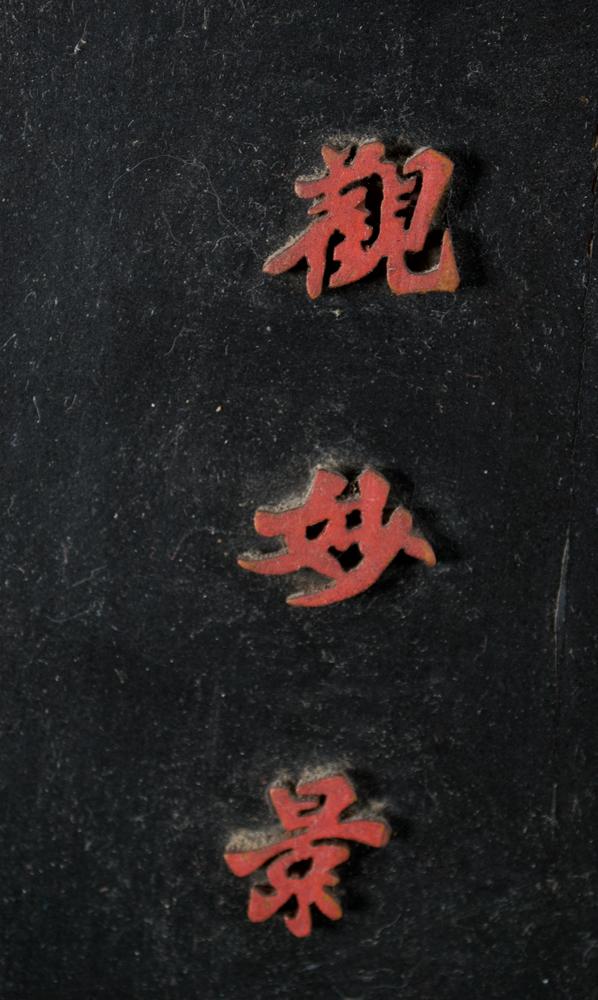 觀妙景